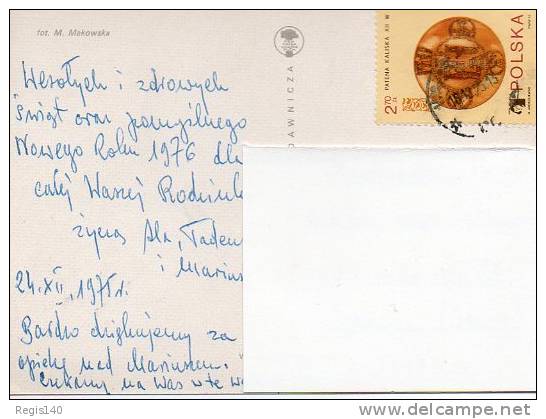 fot. M. Makowska
Wesołych i zdrowych
Świąt oraz pomyślnego
Nowego Roku 1976 dla
całej Waszej Rodzin
życzą Ala, Tadeu
i Marius
24.XII.1975r.
Bardzo dziękujemy za
opiekę nad Mariuszem.
Czekamy na Was w te
DAWNICZA
PATENA KALISKA XII W
2,70 ZŁ
POLSKA
Regis140
delcampe.net